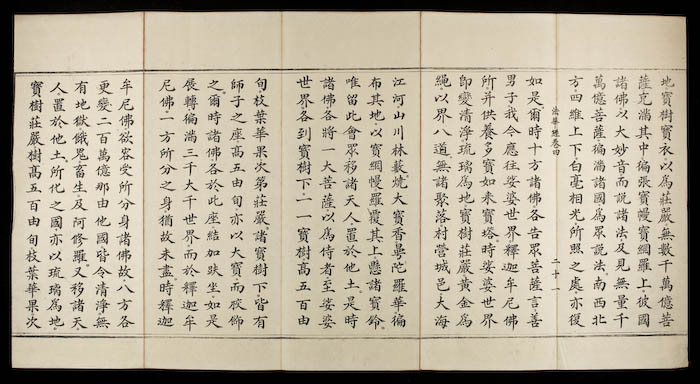 地寶樹寶衣以爲莊嚴無數千萬億菩
薩充滿其中徧張寶幔寶網羅上彼國
諸佛以大妙音而說諸法及見無量千
萬億菩薩徧滿諸國爲眾說法、南西北
方、四維上下、白毫相光所照之處亦復
法華經卷四 二十一
如是、爾時十方諸佛各告眾菩薩言善
男子我今應往娑婆世界釋迦牟尼佛
所并供養多寶如來寶塔、時娑婆世界
卽變清淨琉璃爲地、寶樹莊嚴、黃金爲
繩、以界八道、無諸聚落村營城邑大海
江河山川林藪、燒大寶香曼陀羅華徧
布其地、以寶網幔羅覆其上懸諸寶鈴、
唯留此會眾移諸天人置於他土、是時
諸佛各將一大菩薩以爲侍者至娑婆
世界各到寶樹下、一一寶樹高五百由
旬枝葉華果次第莊嚴、諸寶樹下皆有
師子之座高五由旬亦以大寶而校飾
之、爾時諸佛各於此座結加趺坐、如是
展轉徧滿三千大千世界而於釋迦牟
尼佛一方所分之身猶故未盡、時釋迦
牟尼佛欲容受所分身諸佛故、八方各
更變二百萬億那由他國皆令清淨無
有地獄餓鬼畜生及阿修羅、又移諸天
人置於他土、所化之國亦以琉璃爲地、
寶樹莊嚴、樹高五百由旬枝葉華果次